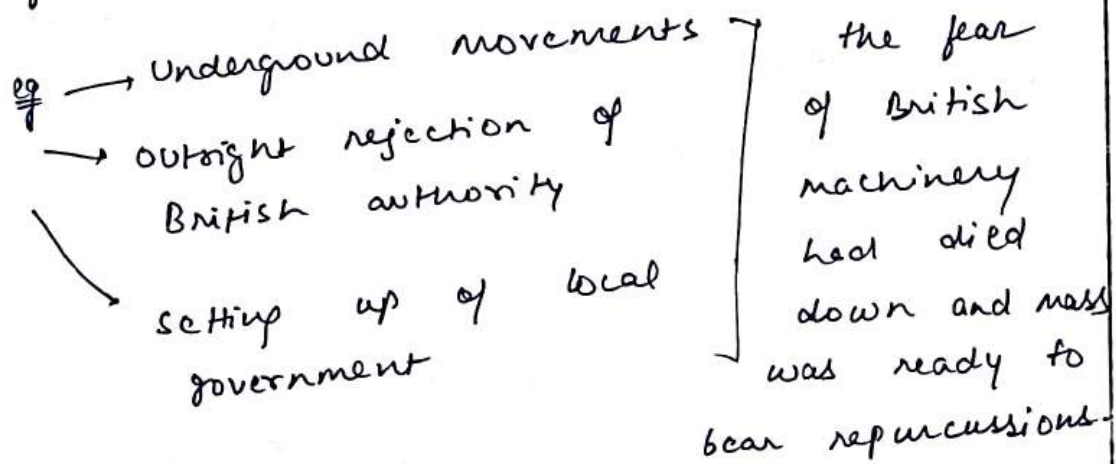 eg → Underground movements
→ outright rejection of
British authority
setting up of local
government
the fear
of British
machinery
had died
down and mass
was ready to
bear repurcussions.